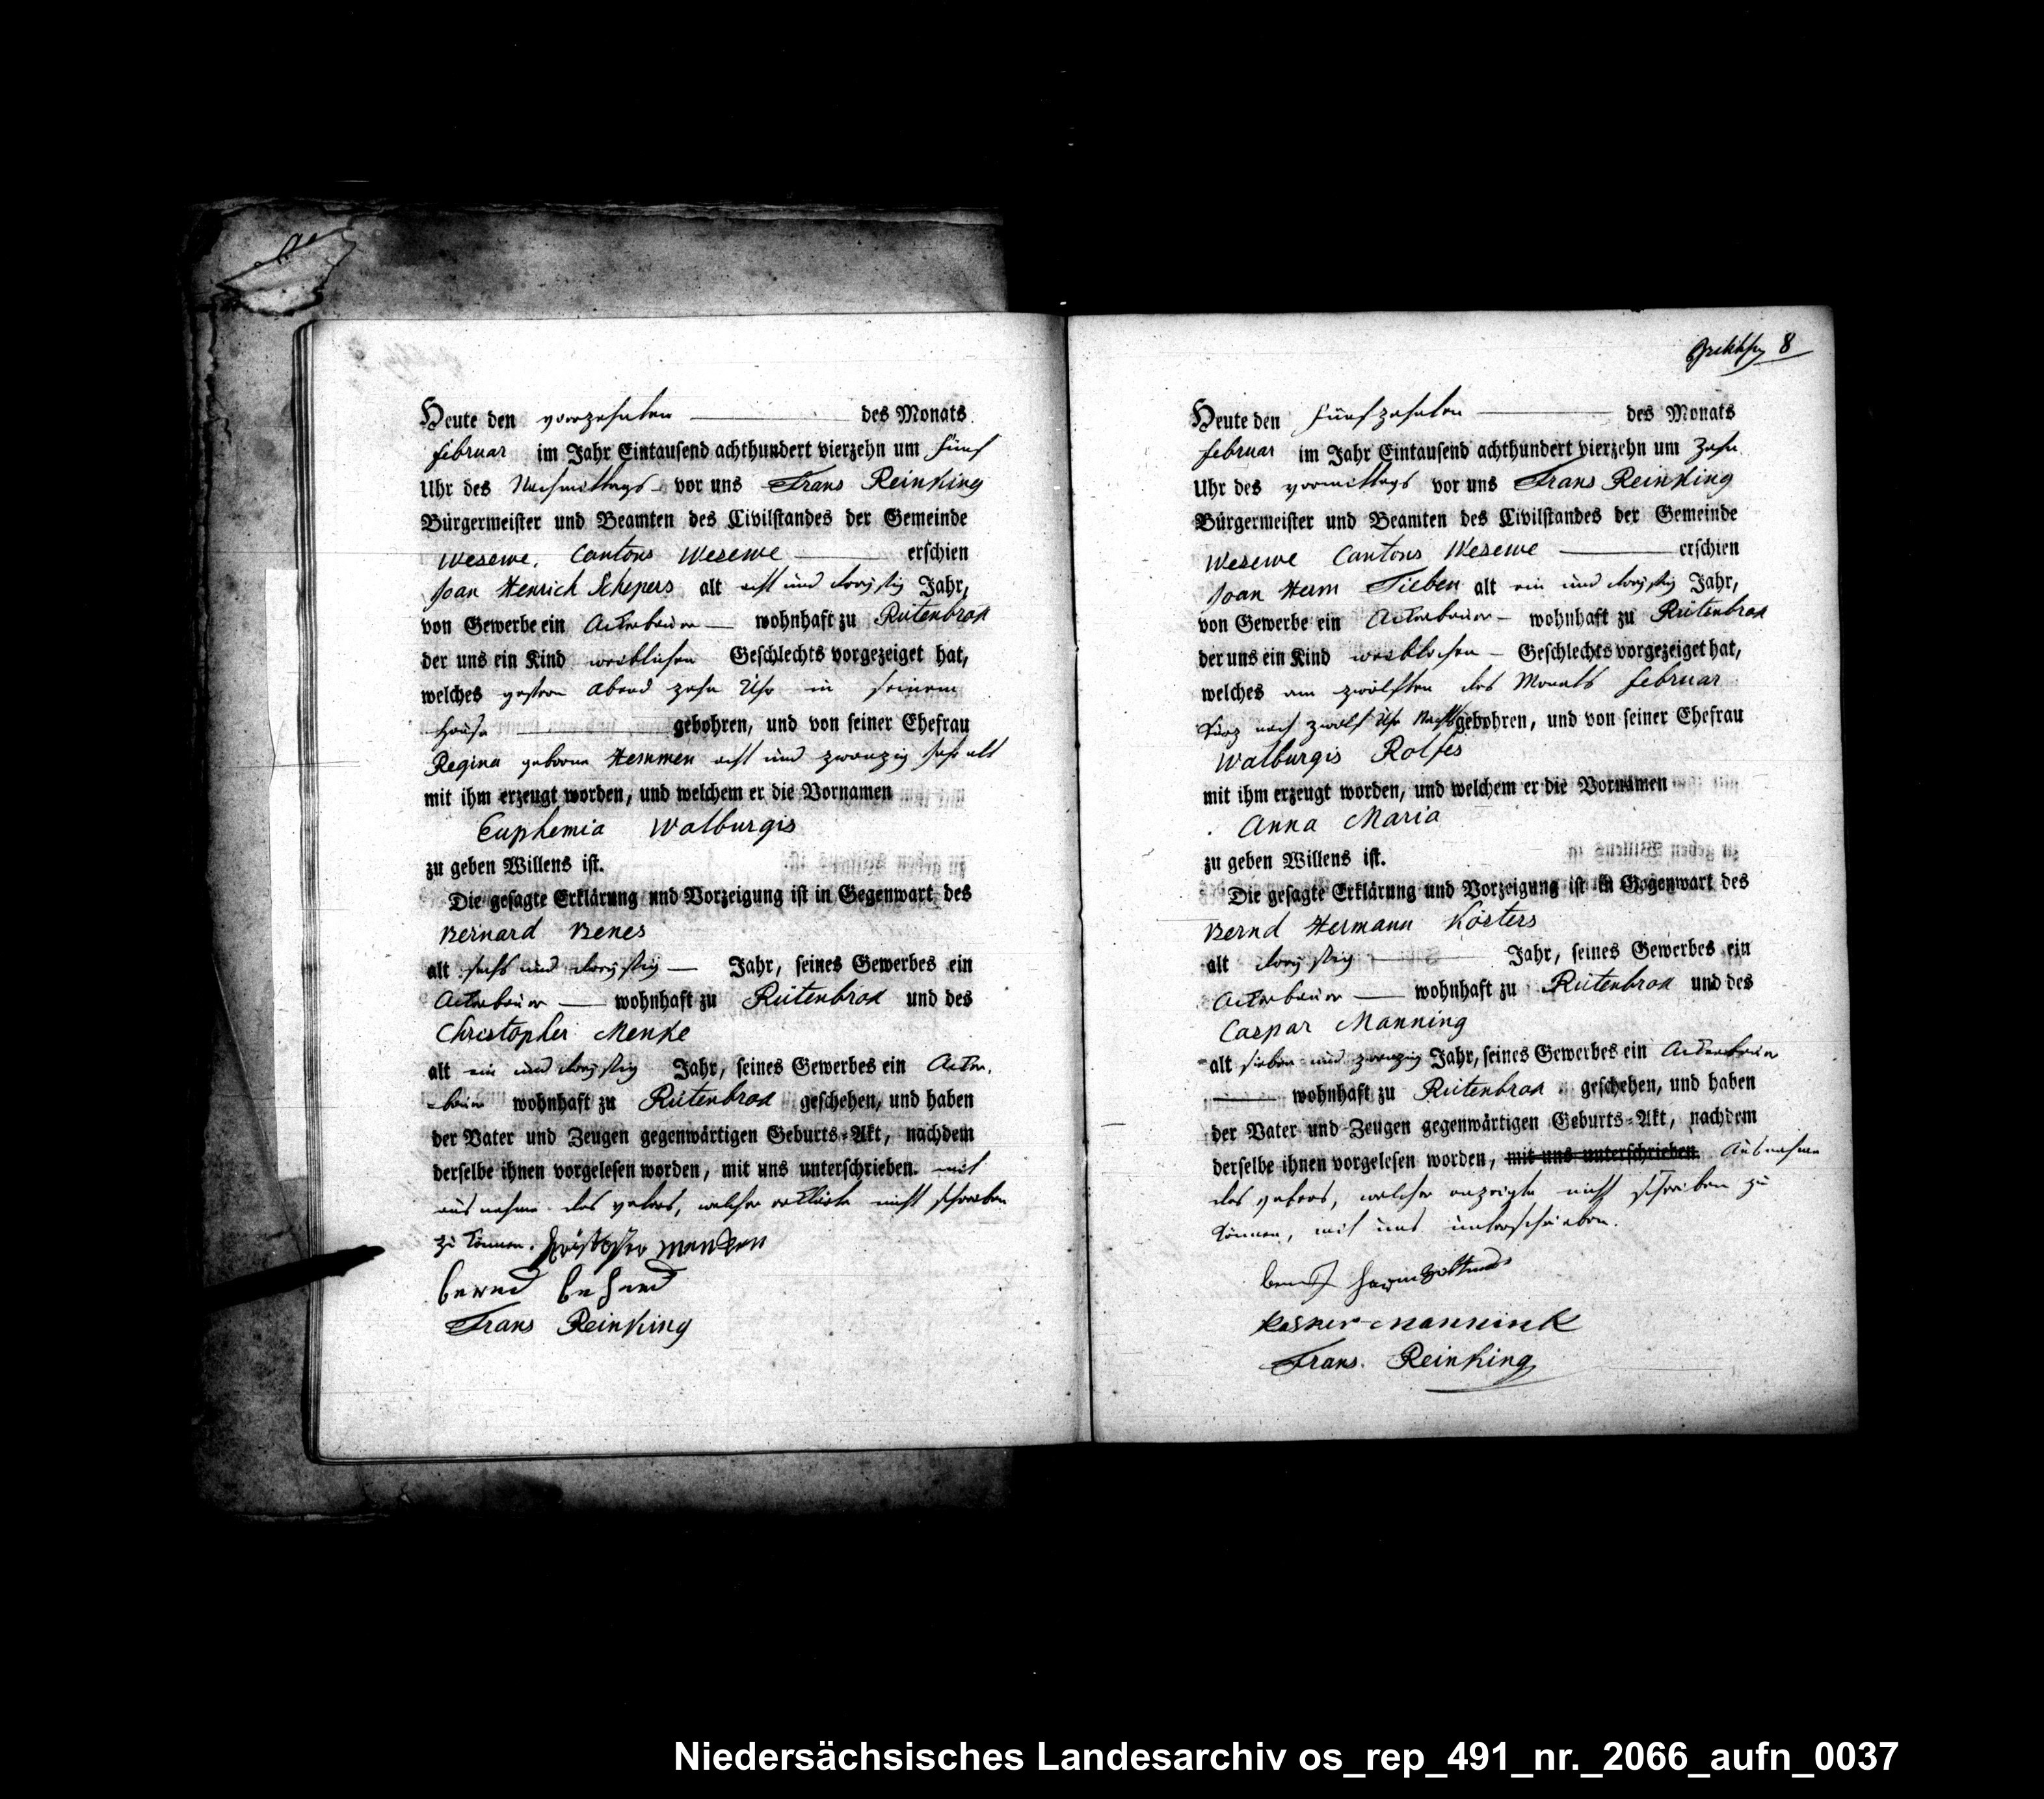 Heute den vierzehnten des Monats
februar im Jahr Eintausend achthundert vierzehn um fünf
Uhr des Nachmittags vor uns Frans Reinking
Bürgermeister und Beamten des Civilstandes der Gemeinde
Wesewe, Cantons Wesewe erschien
Joan Henrich Schepers alt acht und dreyßig Jahr,
von Gewerbe ein Ackerbauer wohnhaft zu Rütenbrok
der uns ein Kind weiblichen Geschlechts vorgezeiget hat,
welches gestern Abend zehn Uhr in seinem
Hause gebohren, und von seiner Ehefrau
Regina geborne Hemmen acht und zwanzig Jahr alt
mit ihm erzeugt worden, und welchem er die Vornamen
Euphemia Walburgis
zu geben Willens ist.
Die gesagte Erklärung und Vorzeigung ist in Gegenwart des
Bernard Benes
alt sechs und dreyßig Jahr, seines Gewerbes ein
Ackerbauer wohnhaft zu Rütenbrok und des
Christopher Menke
alt ein und dreyßig Jahr, seines Gewerbes ein Acker-
bauer wohnhaft zu Rütenbrok geschehen, und haben
der Vater und Zeugen gegenwärtigen Geburts-Akt, nachdem
derselbe ihnen vorgelesen worden, mit uns unterschrieben. mit
ausnahme des vaters, welcher erklärte nicht schreiben
zu können.
bernd
Frans Reinking
8
Heute den fünfzehnten des Monats
februar im Jahr Eintausend achthundert vierzehn um zehn
Uhr des vormittags vor uns Frans Reinking
Bürgermeister und Beamten des Civilstandes der Gemeinde
Wesewe Cantons Wesewe erschien
Joan Herm Tieben alt ein und dreyßig Jahr,
von Gewerbe ein Ackerbauer wohnhaft zu Rütenbrok
der uns ein Kind weiblichen Geschlechts vorgezeiget hat,
welches am zwölften des Monats februar
kurz nach zwölf Uhr Nachts gebohren, und von seiner Ehefrau
Walburgis Rolfes
mit ihm erzeugt worden, und welchem er die Vornamen
Anna Maria
zu geben Willens ist.
Die gesagte Erklärung und Vorzeigung ist in Gegenwart des
Bernd Hermann Kösters
alt dreyßig Jahr, seines Gewerbes ein
Ackerbauer wohnhaft zu Rütenbrok und des
Caspar Manning
alt sieben und zwanzig Jahr, seines Gewerbes ein Ackerbauer
wohnhaft zu Rütenbrok geschehen, und haben
der Vater und Zeugen gegenwärtigen Geburts-Akt, nachdem
derselbe ihnen vorgelesen worden, mit uns unterschrieben. Ausnahme
des vaters, welcher anzeigte nicht schreiben zu
können, mit uns unterschrieben.
Mannink
Frans. Reinking
Niedersächsisches Landesarchiv os_rep_491_nr._2066_aufn_0037